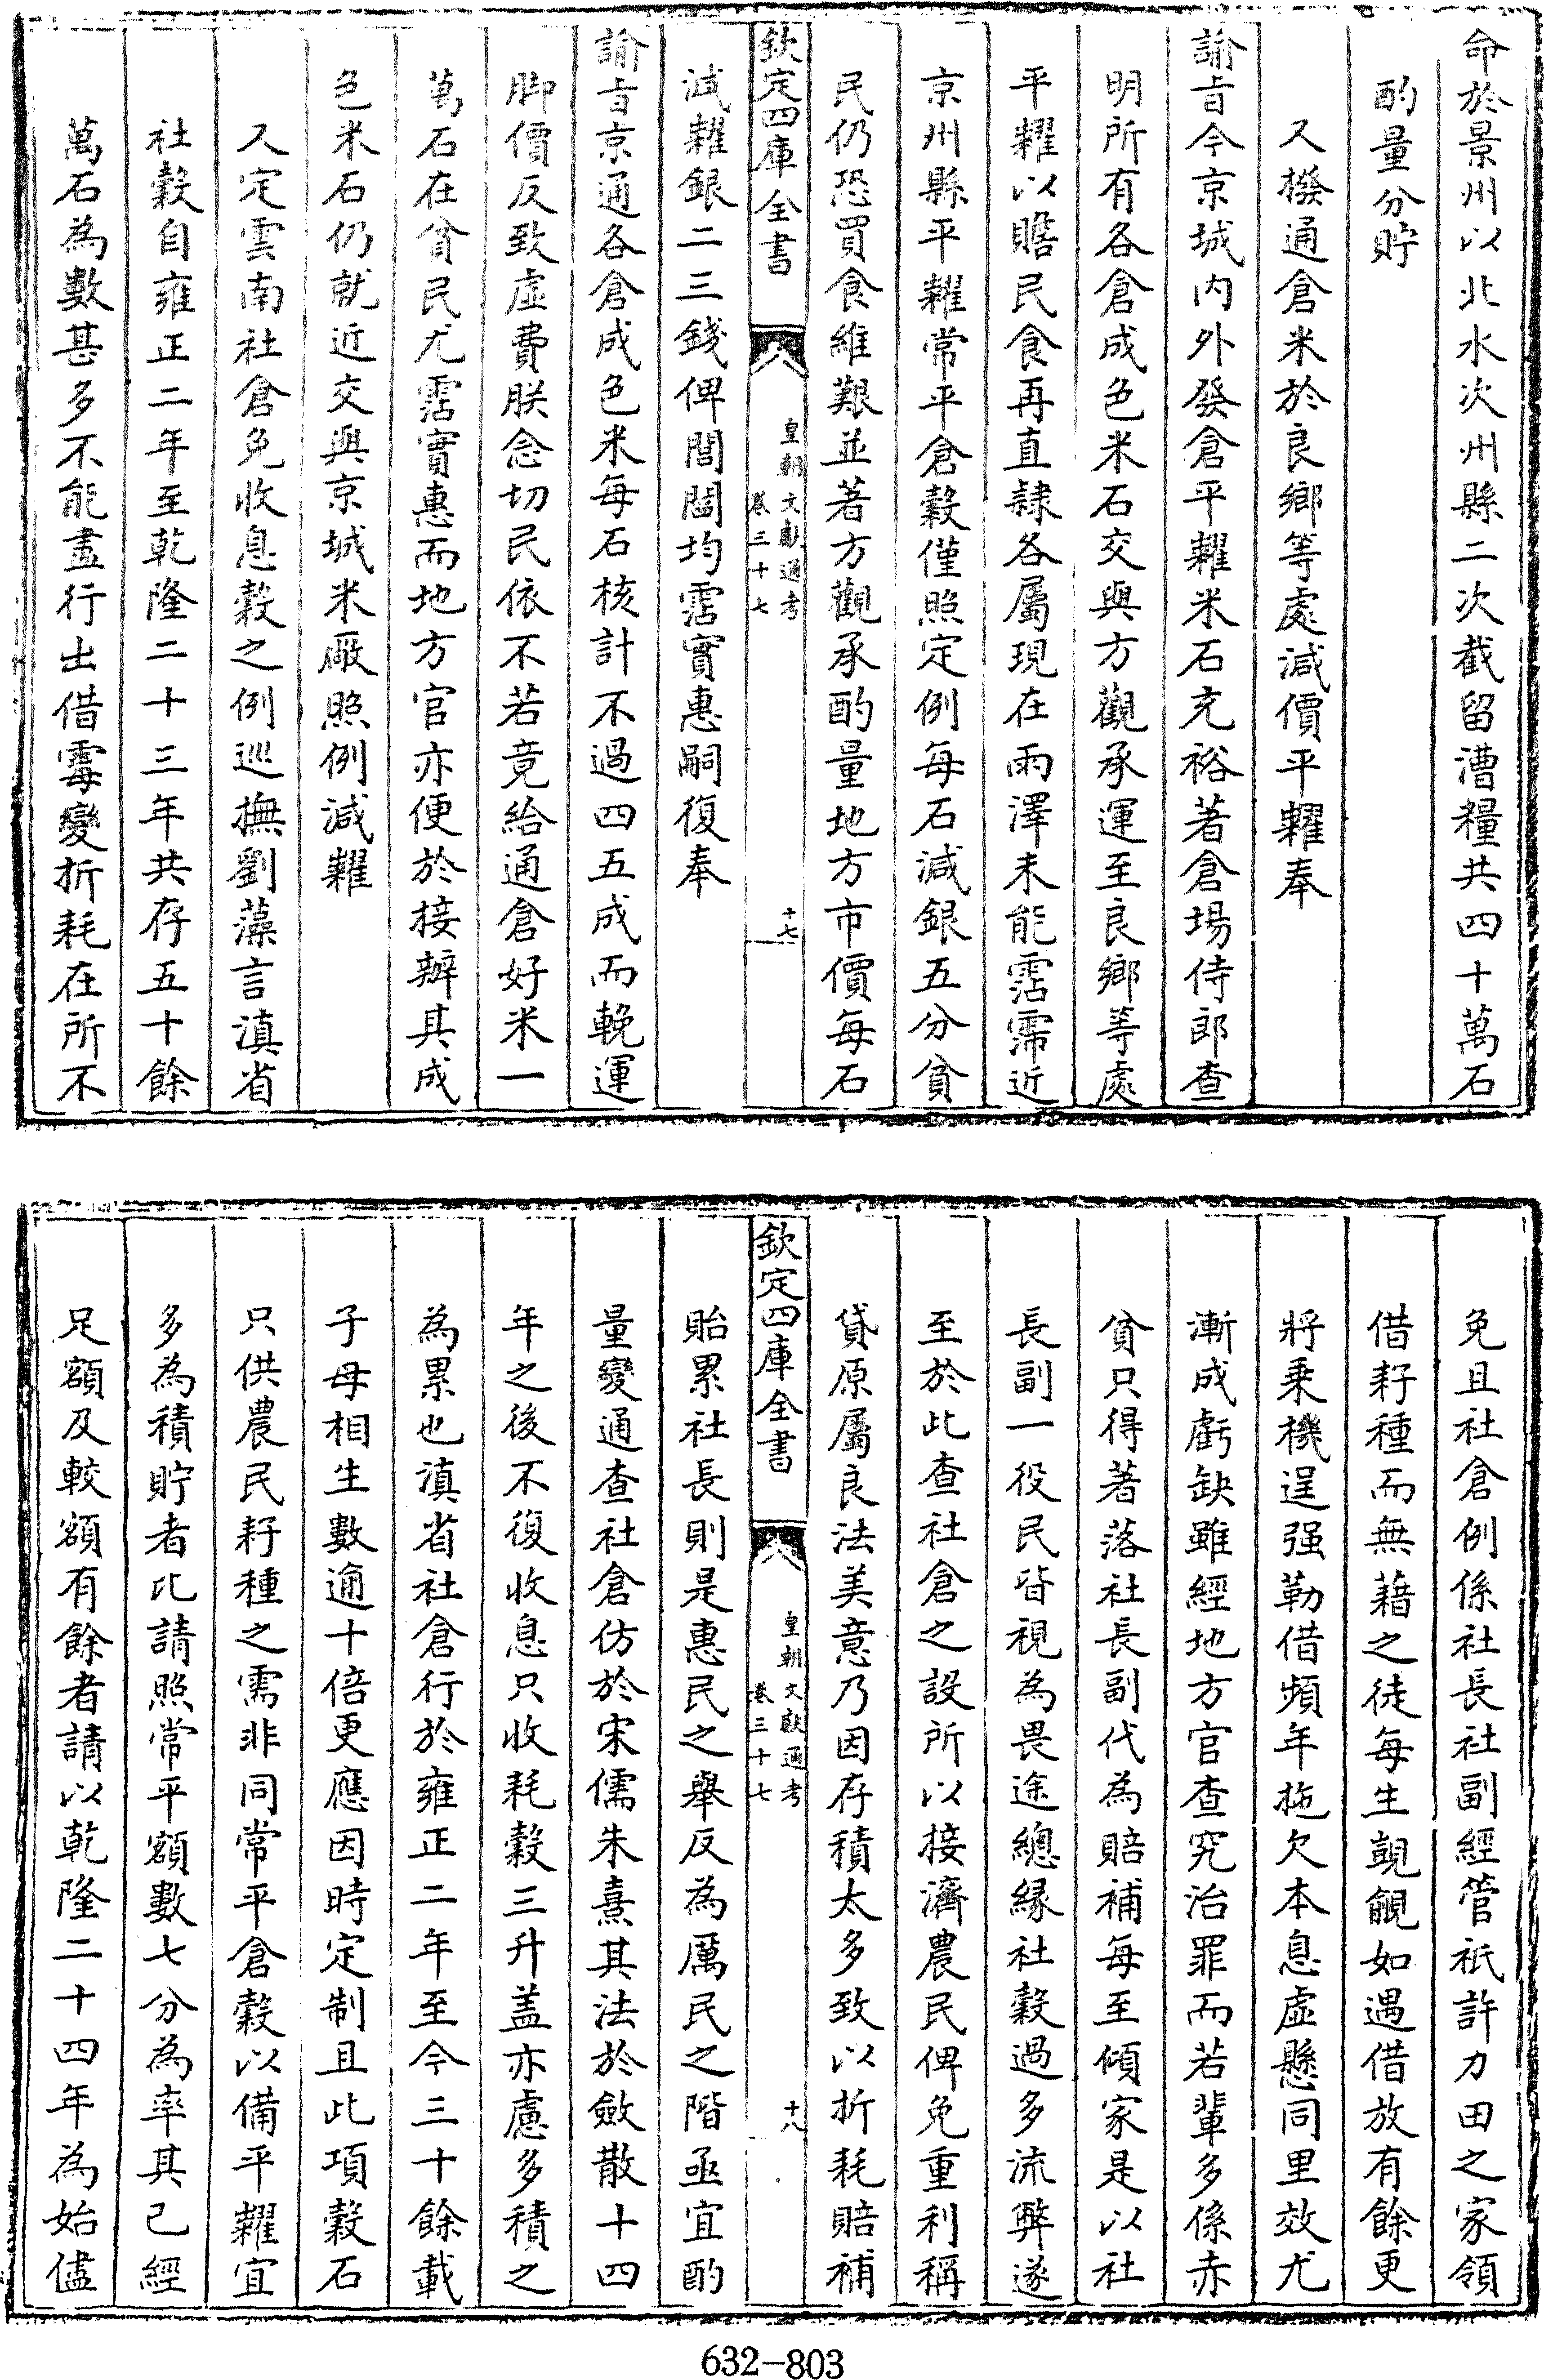 命於景州以北水次州縣二次截留漕糧共四十萬石
酌量分貯
又撥通倉米於良鄉等處減價平糶奉
諭旨今京城内外發倉平糶米石充裕著倉場侍郎查
明所有各倉成色米石交與方觀承運至良鄉等處
平糶以贍民食再直隸各屬現在雨澤未能霑霈近
京州縣平糶常平倉穀僅照定例每石減銀五分貧
民仍恐買食維艱並著方觀承酌量地方市價每石
欽定四庫全書
皇朝文獻通考
卷三十七
十七
減糶銀二三錢俾閭閻均霑實惠嗣復奉
諭旨京通各倉成色米每石核計不過四五成而輓運
脚價反致虛費朕念切民依不若竟給通倉好米一
萬石在貧民尤霑實惠而地方官亦便於接辦其成
色米石仍就近交與京城米厰照例減糶
又定雲南社倉免收息穀之例巡撫劉藻言滇省
社穀自雍正二年至乾隆二十三年共存五十餘
萬石為數甚多不能盡行出借霉變折耗在所不
免且社倉例係社長社副經管祇許力田之家領
借耔種而無藉之徒每生覬覦如遇借放有餘更
將乘機逞强勒借頻年拖欠本息虛懸同里效尤
漸成虧缺雖經地方官查究治罪而若輩多係赤
貧只得著落社長副代為賠補每至傾家是以社
長副一役民皆視為畏途總緣社穀過多流弊遂
至於此查社倉之設所以接濟農民俾免重利稱
貸原屬良法美意乃因存積太多致以折耗賠補
欽定四庫全書
皇朝文獻通考
卷三十七
十八
貽累社長則是惠民之舉反為厲民之階亟宜酌
量變通查社倉仿於宋儒朱熹其法於斂散十四
年之後不復收息只收耗穀三升盖亦慮多積之
為累也滇省社倉行於雍正二年至今三十餘載
子母相生數逾十倍更應因時定制且此項穀石
只供農民耔種之需非同常平倉穀以備平糶宜
多為積貯者比請照常平額數七分為率其已經
足額及較額有餘者請以乾隆二十四年為始儘
632-803